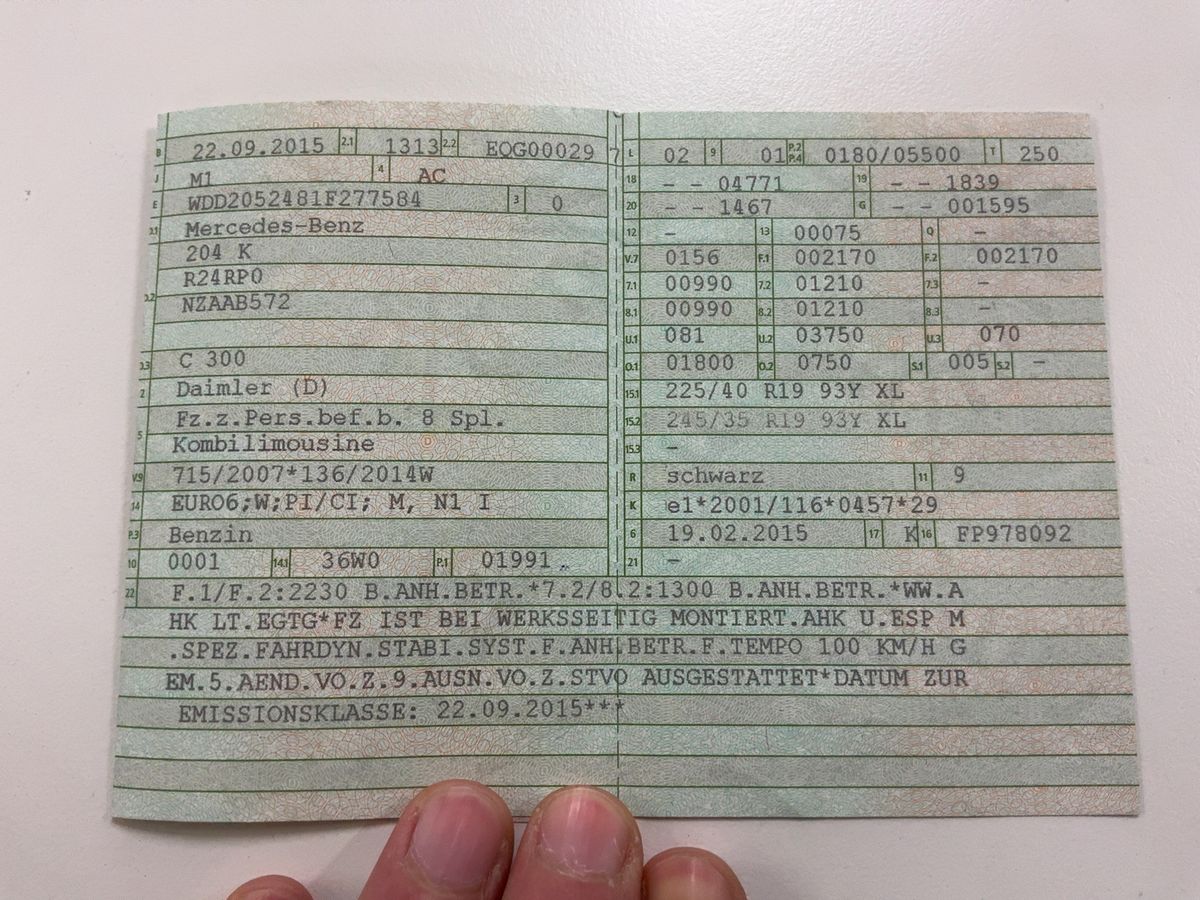 B 22.09.2015 2.1 1313 2.2 EQG00029 7
J M1 4 AC
E WDD2052481F277584 3 0
D.1 Mercedes-Benz
204 K
D.2 R24RP0
NZAAB572
D.3 C 300
2 Daimler (D)
5 Fz.z.Pers.bef.b. 8 Spl.
Kombilimousine
V.9 715/2007*136/2014W
14 EURO6;W;PI/CI; M, N1 I
P.3 Benzin
10 0001 14.1 36W0 P.1 01991
L 02 9 01 P.2 P.4 0180/05500 T 250
18 - - 04771 19 - - 1839
20 - - 1467 G - - 001595
12 - 13 00075 Q -
V.7 0156 F.1 002170 F.2 002170
7.1 00990 7.2 01210 7.3 -
8.1 00990 8.2 01210 8.3 -
U.1 081 U.2 03750 U.3 070
O.1 01800 O.2 0750 S.1 005 S.2 -
15.1 225/40 R19 93Y XL
15.2 245/35 R19 93Y XL
15.3 -
R schwarz 11 9
K e1*2001/116*0457*29
6 19.02.2015 17 K 16 FP978092
21 -
22 F.1/F.2:2230 B.ANH.BETR.*7.2/8.2:1300 B.ANH.BETR.*WW.A
HK LT.EGTG*FZ IST BEI WERKSSEITIG MONTIERT.AHK U.ESP M
.SPEZ.FAHRDYN.STABI.SYST.F.ANH.BETR.F.TEMPO 100 KM/H G
EM.5.AEND.VO.Z.9.AUSN.VO.Z.STVO AUSGESTATTET*DATUM ZUR
EMISSIONSKLASSE: 22.09.2015***